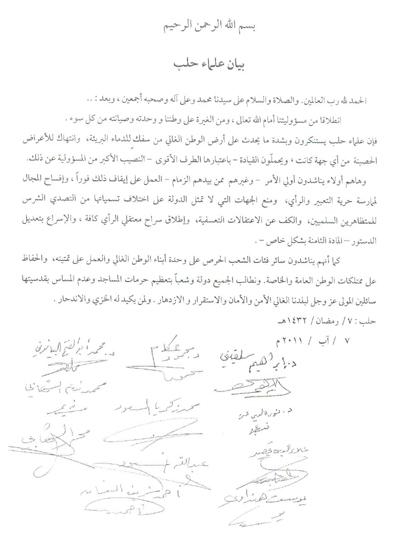 بسم الله الرحمن الرحيم
بيان علماء حلب
الحمد لله رب العالمين. والصلاة والسلام على سيدنا محمد وعلى آله وصحبه أجمعين ، وبعد : ..
انطلاقا من مسؤوليتنا أمام الله تعالى ، ومن الغيرة على وطننا و وحدته وصيانته من كل سوء .
فإن علماء حلب يستنكرون وبشدة ما يحدث على أرض الوطن الغالي من سفك للدماء البريئة، وانتهاك للأعراض
الحصينة من أي جهة كانت ، ويحملون القيادة – باعتبارها الطرف الأقوى – النصيب الأكبر من المسؤولية عن ذلك.
وهاهم أولاء يناشدون أولي الأمر – وغيرهم ممن بيدهم الزمام – العمل على إيقاف ذلك فوراً ، وإفساح المجال
لممارسة حرية التعبير والرأي، ومنع الجهات التي لا تمثل الدولة على اختلاف تسمياتها من التصدي الشرس
للمتظاهرين السلميين، والكف عن الاعتقالات التعسفية، وإطلاق سراح معتقلي الرأي كافة ، والإسراع بتعديل
الدستور – المادة الثامنة بشكل خاص – .
كما أنهم يناشدون سائر فئات الشعب الحرص على وحدة أبناء الوطن الغالي والعمل على تمتينه، والحفاظ
على ممتلكات الوطن العامة والخاصة. ونطالب الجميع دولة وشعباً بتعظيم حرمات المساجد وعدم المساس بقدسيتها
سائلين المولى عز وجل لبلدنا الغالي الأمن والأمان والاستقرار و الازدهار . ولمن يكيد له الخزي والاندحار .
حلب : ٧ / رمضان / ١٤٣٢هـ
٧ / آب / ٢٠١١م
د. إبراهيم سلقيني
د. محمود عكام
د. محمد أبو الفتح البيانوني
محمد زكريا المسعود
د. نور الدين عتر
عبد الله مسعود
يوسف هنداوي